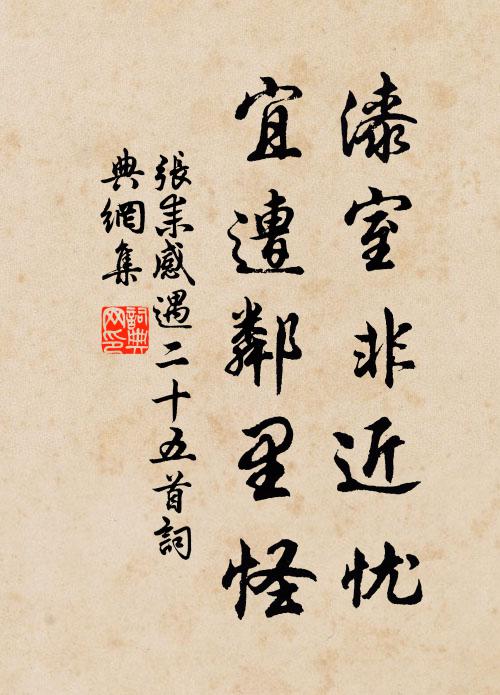 漆室非近忧
宜遭鄰里怪
張耒感遇二十五首詞
典網集
詞典网印